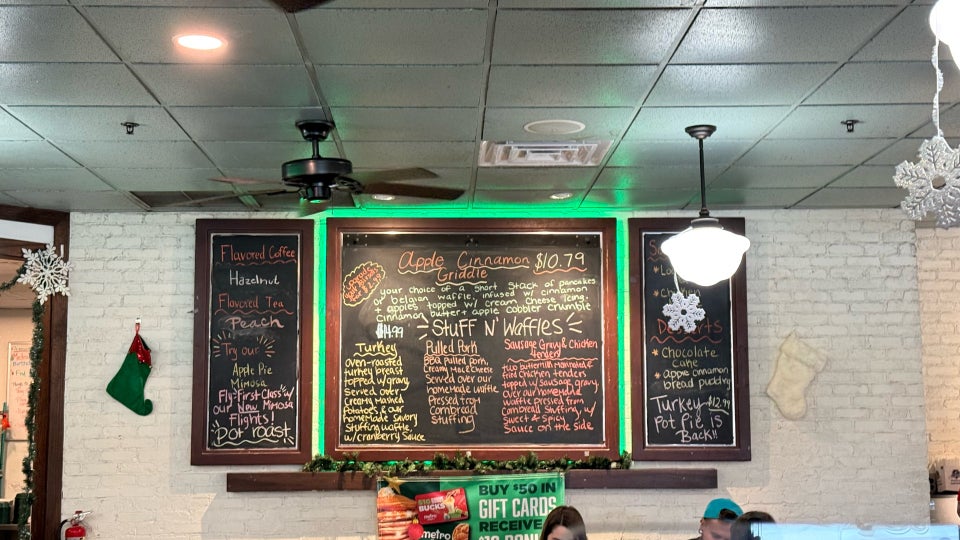 Flavored Coffee
Hazelnut
Flavored Tea
Peach
Try our
Apple Pie
Mimosa
Fly-First-Class w/
our New Mimosa
Flights
Pot roast
Apple Cinnamon $10.79
Griddle
your choice of a short stack of pancakes
or belgian waffle, infused w/ cinnamon
+ apples, topped w/ cream cheese icing,
cinnamon butter + apple cobbler crumble
$14.99
Stuff N' Waffles
Turkey
oven-roasted
turkey breast
topped w/ gravy,
Served over
Creamy Mashed
Potatoes, & our
homemade savory
Stuffing waffle,
w/ cranberry Sauce
Pulled Pork
BBQ Pulled pork,
Creamy Mac & Cheese
Served over our
homemade waffle
Pressed from
Cornbread
Stuffing
Sausage Gravy & Chicken
Tenders
two buttermilk marinated &
fried Chicken tenders
topped w/ Sausage gravy,
over our homemade
waffle pressed from
Cornbread Stuffing, w/
Sweet & Spicy
Sauce on the side
Desserts
* Chocolate
cake
* apple cinnamon
bread pudding
Turkey $12.99
Pot Pie is
Back!!
BUY $50 IN
GIFT CARDS
RECEIVE
$10 BONUS
$10 BONUS
BUCKS
metro